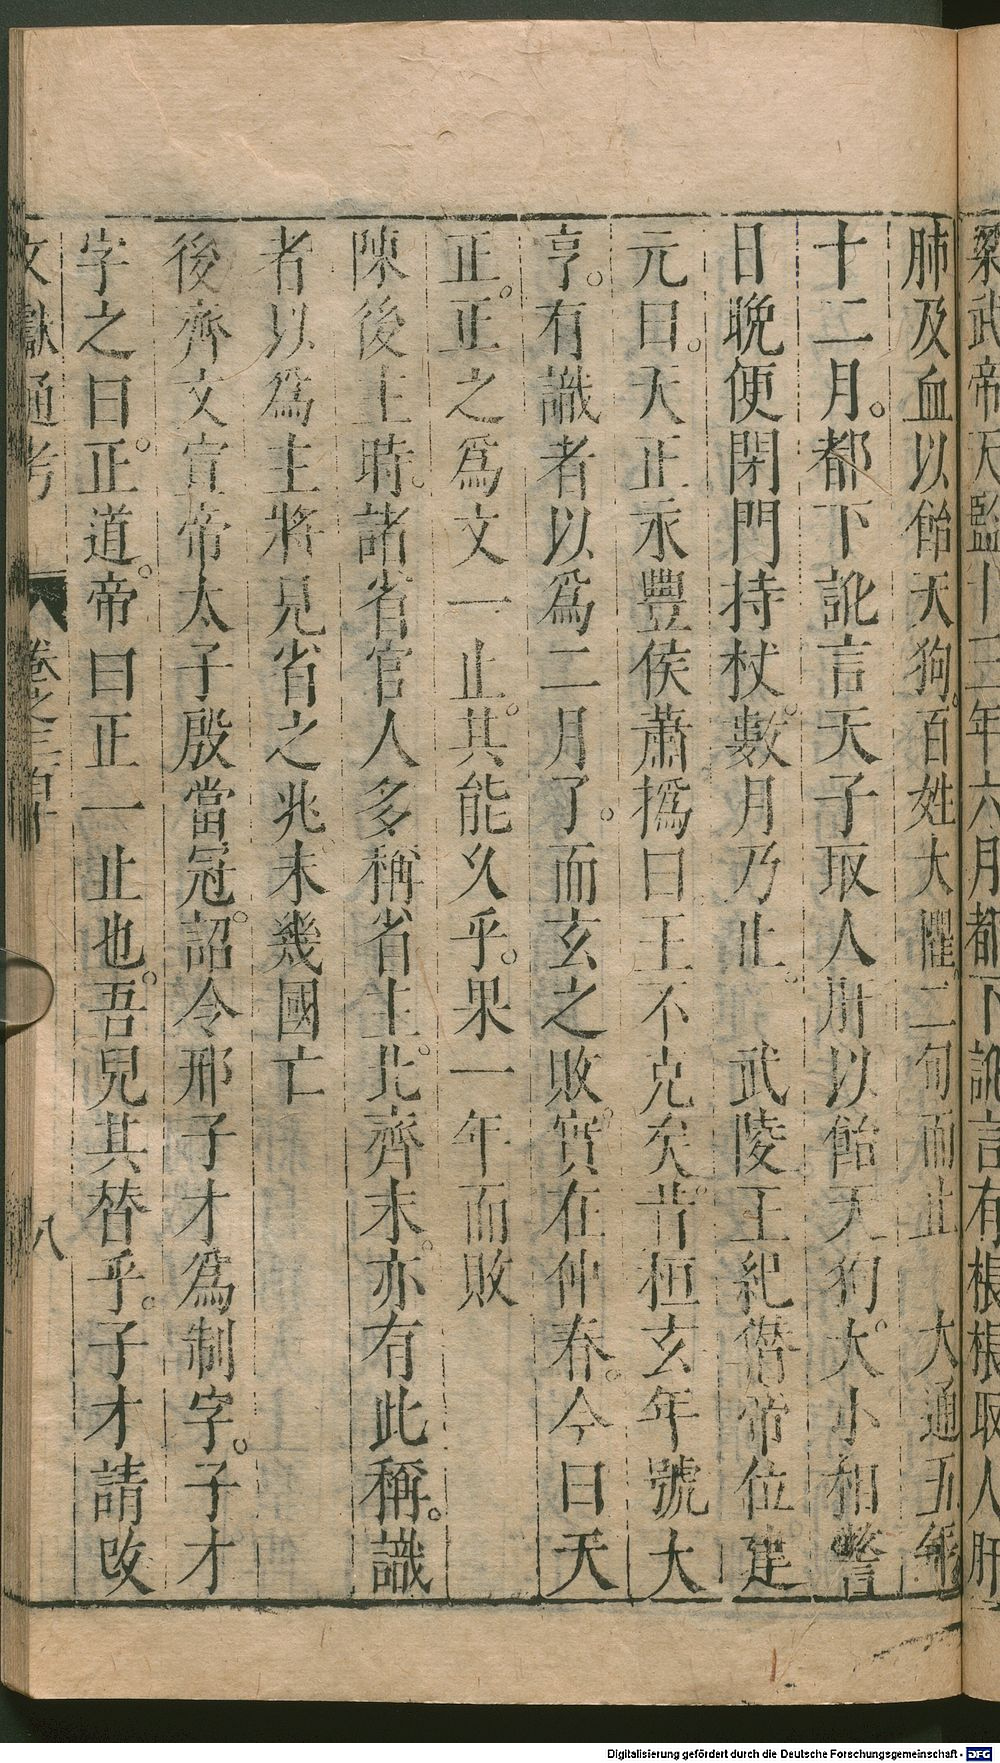 梁武帝天監十三年六月都下訛言有棖棖取人肝
肺及血以飴天狗。百姓大懼。二旬而止　大通五年
十二月。都下訛言天子取人肝以飴天狗。大小相警
日晚便閉門持杖。數月乃止。　武陵王紀僭帝位。建
元曰。天正永豐侯蕭撝曰王不克矣。昔桓玄年號大
亨。有識者以爲二月了。而玄之敗。實在仲春。今曰天
正。正之爲文一止。其能久乎。果一年而敗
陳後主時。諸省官人多稱省主。北齊末。亦有此稱。識
者以爲主將見省之兆。未幾國亡
後齊文宣帝太子殷當冠。詔令邢子才爲制字。子才
字之曰。正道。帝曰正一止也。吾兒其替乎。子才請改
文獻通考　卷之三百十　八
Digitalisierung gefördert durch die Deutsche Forschungsgemeinschaft - DFG